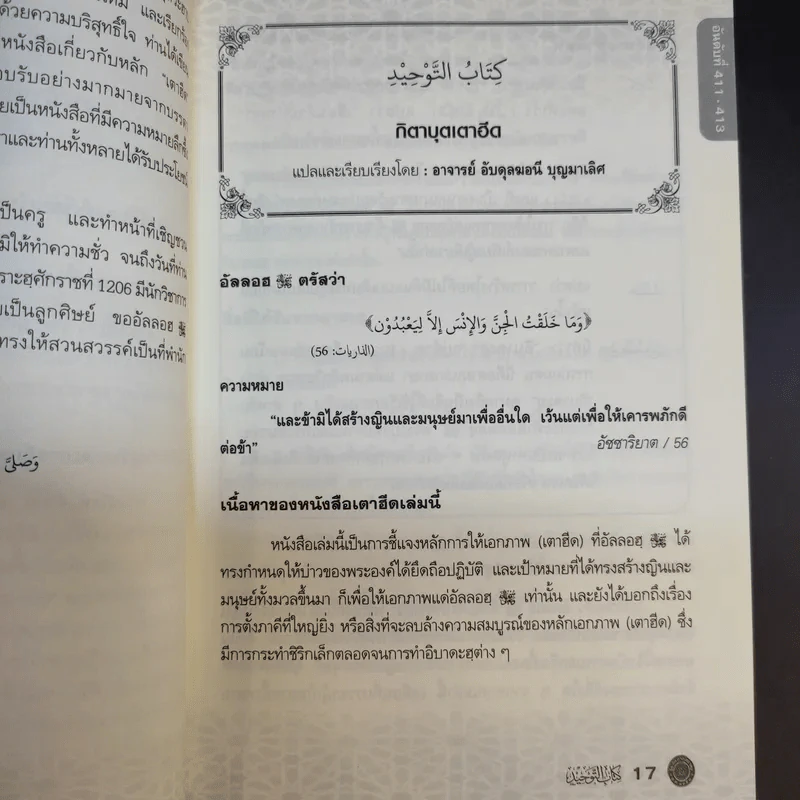 ด้วยความบริสุทธิ์ใจ ท่านได้เขียน
หนังสือเกี่ยวกับหลัก "เตาฮีด
อบรับอย่างมากมายจากบรรดา
ยเป็นหนังสือที่มีความหมายลึกซึ้ง
าและท่านทั้งหลายได้รับประโยชน์
เป็นครู และทำหน้าที่เชิญชวน
มิให้ทำความชั่ว จนถึงวันที่ท่าน
ราะฮฺศักราชที่ 1206 มีนักวิชาการ
ยเป็นลูกศิษย์ ขออัลลอฮฺ ﷻ
ทรงให้สวนสวรรค์เป็นที่พำนัก
وَصَلَّىٰ
อันดับที่ 411 - 413
كِتَابُ التَّوْحِيْدِ
กิตาบุตเตาฮีด
แปลและเรียบเรียงโดย : อาจารย์ อับดุลฆอนี บุญมาเลิศ
อัลลอฮ ﷻ ตรัสว่า
﴿وَمَا خَلَقْتُ الْجِنَّ وَالإِنْسَ إِلاَّ لِيَعْبُدُوْنِ﴾
(الذاريات: 56)
ความหมาย
"และข้ามิได้สร้างญินและมนุษย์มาเพื่ออื่นใด เว้นแต่เพื่อให้เคารพภักดี
ต่อข้า" อัซซาริยาต / 56
เนื้อหาของหนังสือเตาฮีดเล่มนี้
หนังสือเล่มนี้เป็นการชี้แจงหลักการให้เอกภาพ (เตาฮีด) ที่อัลลอฮฺ ﷻ ได้
ทรงกำหนดให้บ่าวของพระองค์ได้ยึดถือปฏิบัติ และเป้าหมายที่ได้ทรงสร้างญินและ
มนุษย์ทั้งมวลขึ้นมา ก็เพื่อให้เอกภาพแด่อัลลอฮฺ ﷻ เท่านั้น และยังได้บอกถึงเรื่อง
การตั้งภาคีที่ใหญ่ยิ่ง หรือสิ่งที่จะลบล้างความสมบูรณ์ของหลักเอกภาพ (เตาฮีด) ซึ่ง
มีการกระทำชิริกเล็กตลอดจนการทำอิบาดะฮฺต่าง ๆ
كتاب التوحيد 17